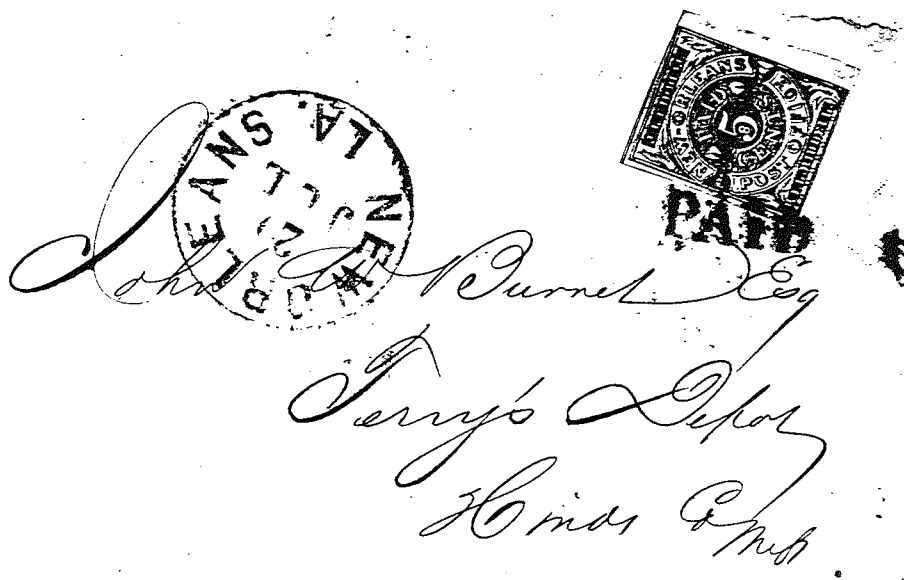 NEW-ORLEANS POST OFFICE
PAID 5 CENTS
NEW ORLEANS LA.
JUL
PAID
John Burnet Esq
Terry's Depot
Hinds Co Miss